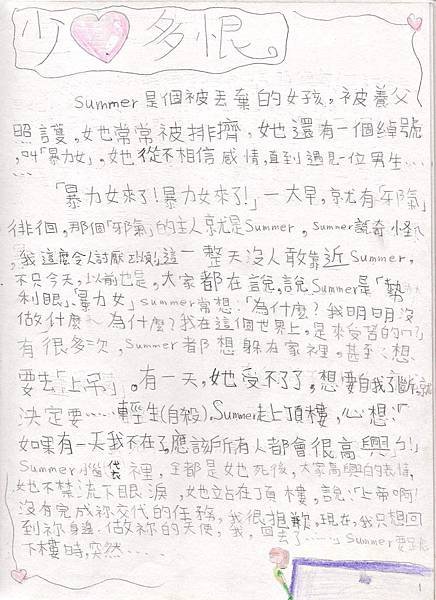 少♡多恨。
Summer是個被丟棄的女孩,被養父
照護,她也常常被排擠,她還有一個綽號
,叫「暴力女」。她從不相信感情,直到遇見一位男生……
……
「暴力女來了!暴力女來了!」一大早,就有「邪氣」
徘徊,那個「邪氣」的主人就是Summer,Summer
,我這麼令人討厭 這一整天沒人敢靠近Summer,
不只今天,以前也是,大家都在說,說Summer是「勢
利眼」、「暴力女」Summer常想:「為什麼?我明明沒
做什麼~為什麼?我在這個世界上,是來受苦的嗎?」
有很多次,Summer都想躲在家裡,甚至想
要去「上吊」。有一天,她受不了了,想要自我了斷,就
決定要……輕生(自殺),Summer走上頂樓,心想:「
如果有一天我不在了,應該所有人都會很高興ㄅ!」
Summer小腦袋裡,全都是她死後,大家高興的表情,
她不禁流下眼淚,她站在頂樓,說:「上帝啊!
沒有完成祢交代的任務,我很抱歉,現在,我只想回
到祢身邊.做祢的天使,我,回去了……」Summer要跳
下樓時,突然……
1